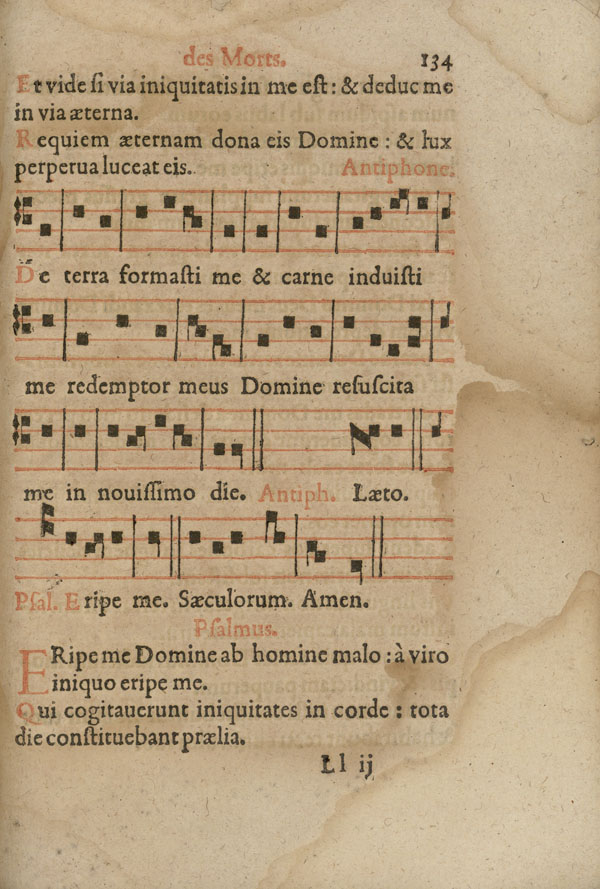 des Morts. 134
Et vide si via iniquitatis in me est: & deduc me
in via æterna.
Requiem æternam dona eis Domine: & lux
perperua luceat eis. Antiphone.
De terra formasti me & carne induisti
me redemptor meus Domine resuscita
me in nouissimo die. Antiph. Læto.
Psal. Eripe me. Sæculorum. Amen.
Psalmus.
ERipe me Domine ab homine malo: à viro
iniquo eripe me.
Qui cogitauerunt iniquitates in corde: tota
die constituebant prælia.
Ll ij